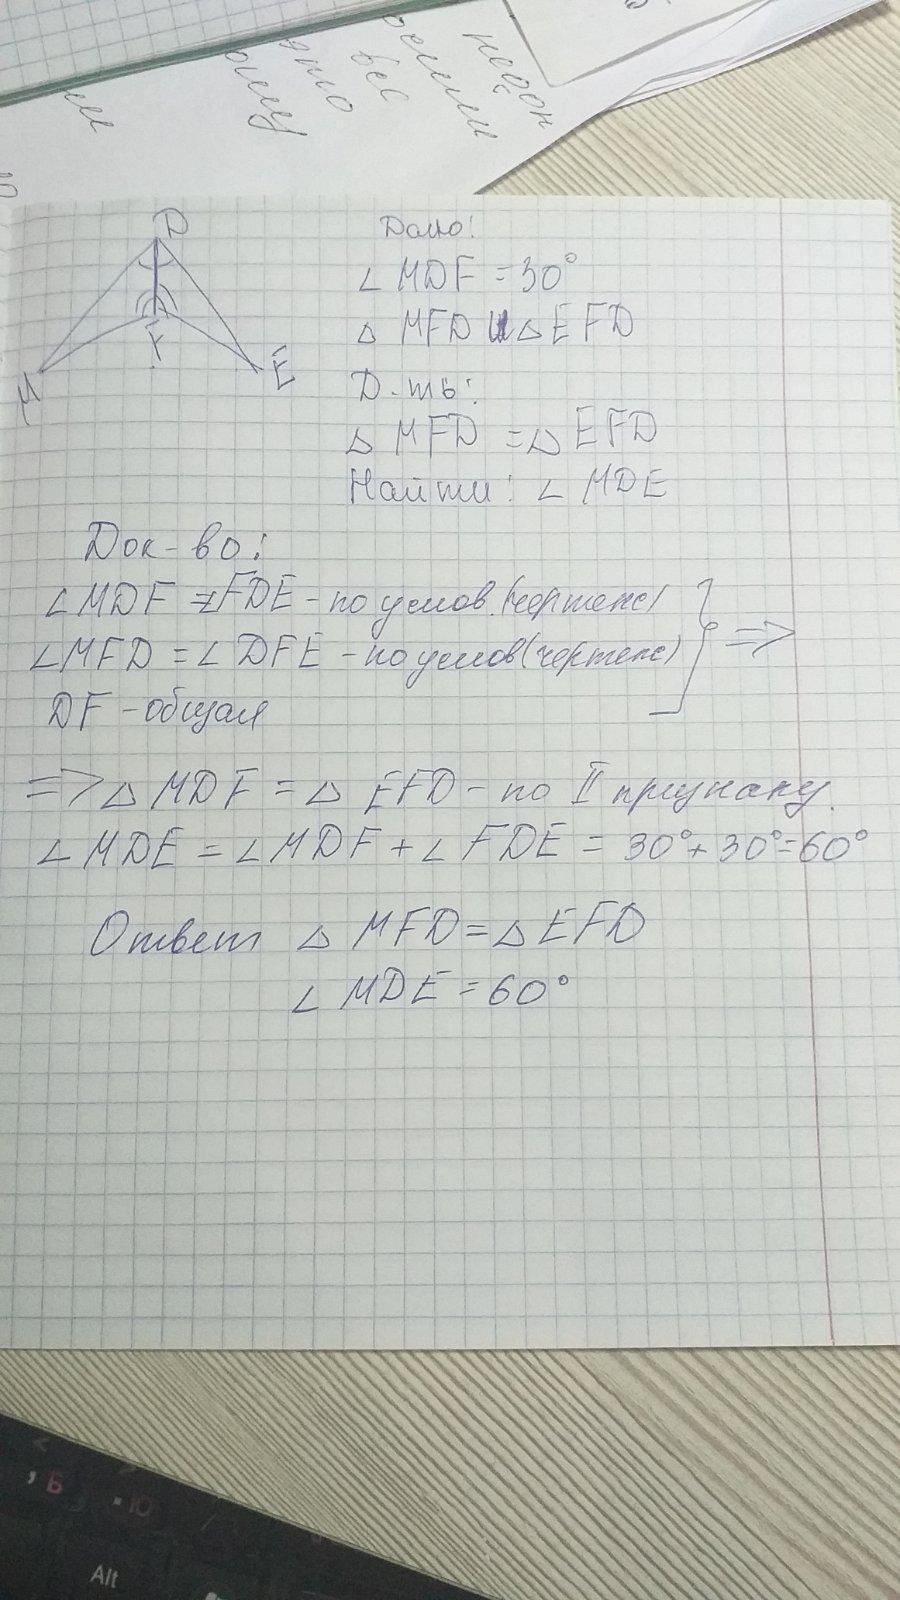 недон
осими
вес
это
D
F
M
E
Дано:
∠ MDF = 30°
△ MFD и △ EFD
Д-ть:
△ MFD = △ EFD
Найти: ∠ MDE
Док-во:
∠MDF = FDE - по услов. (чертеж)
∠MFD = ∠ DFE - по услов (чертеж)
DF - общая
⇒
⇒ △ MDF = △ EFD - по II признаку.
∠ MDE = ∠ MDF + ∠ FDE = 30° + 30° = 60°
Ответ △ MFD = △ EFD
∠ MDE = 60°
< , Б
> . Ю
/
Alt